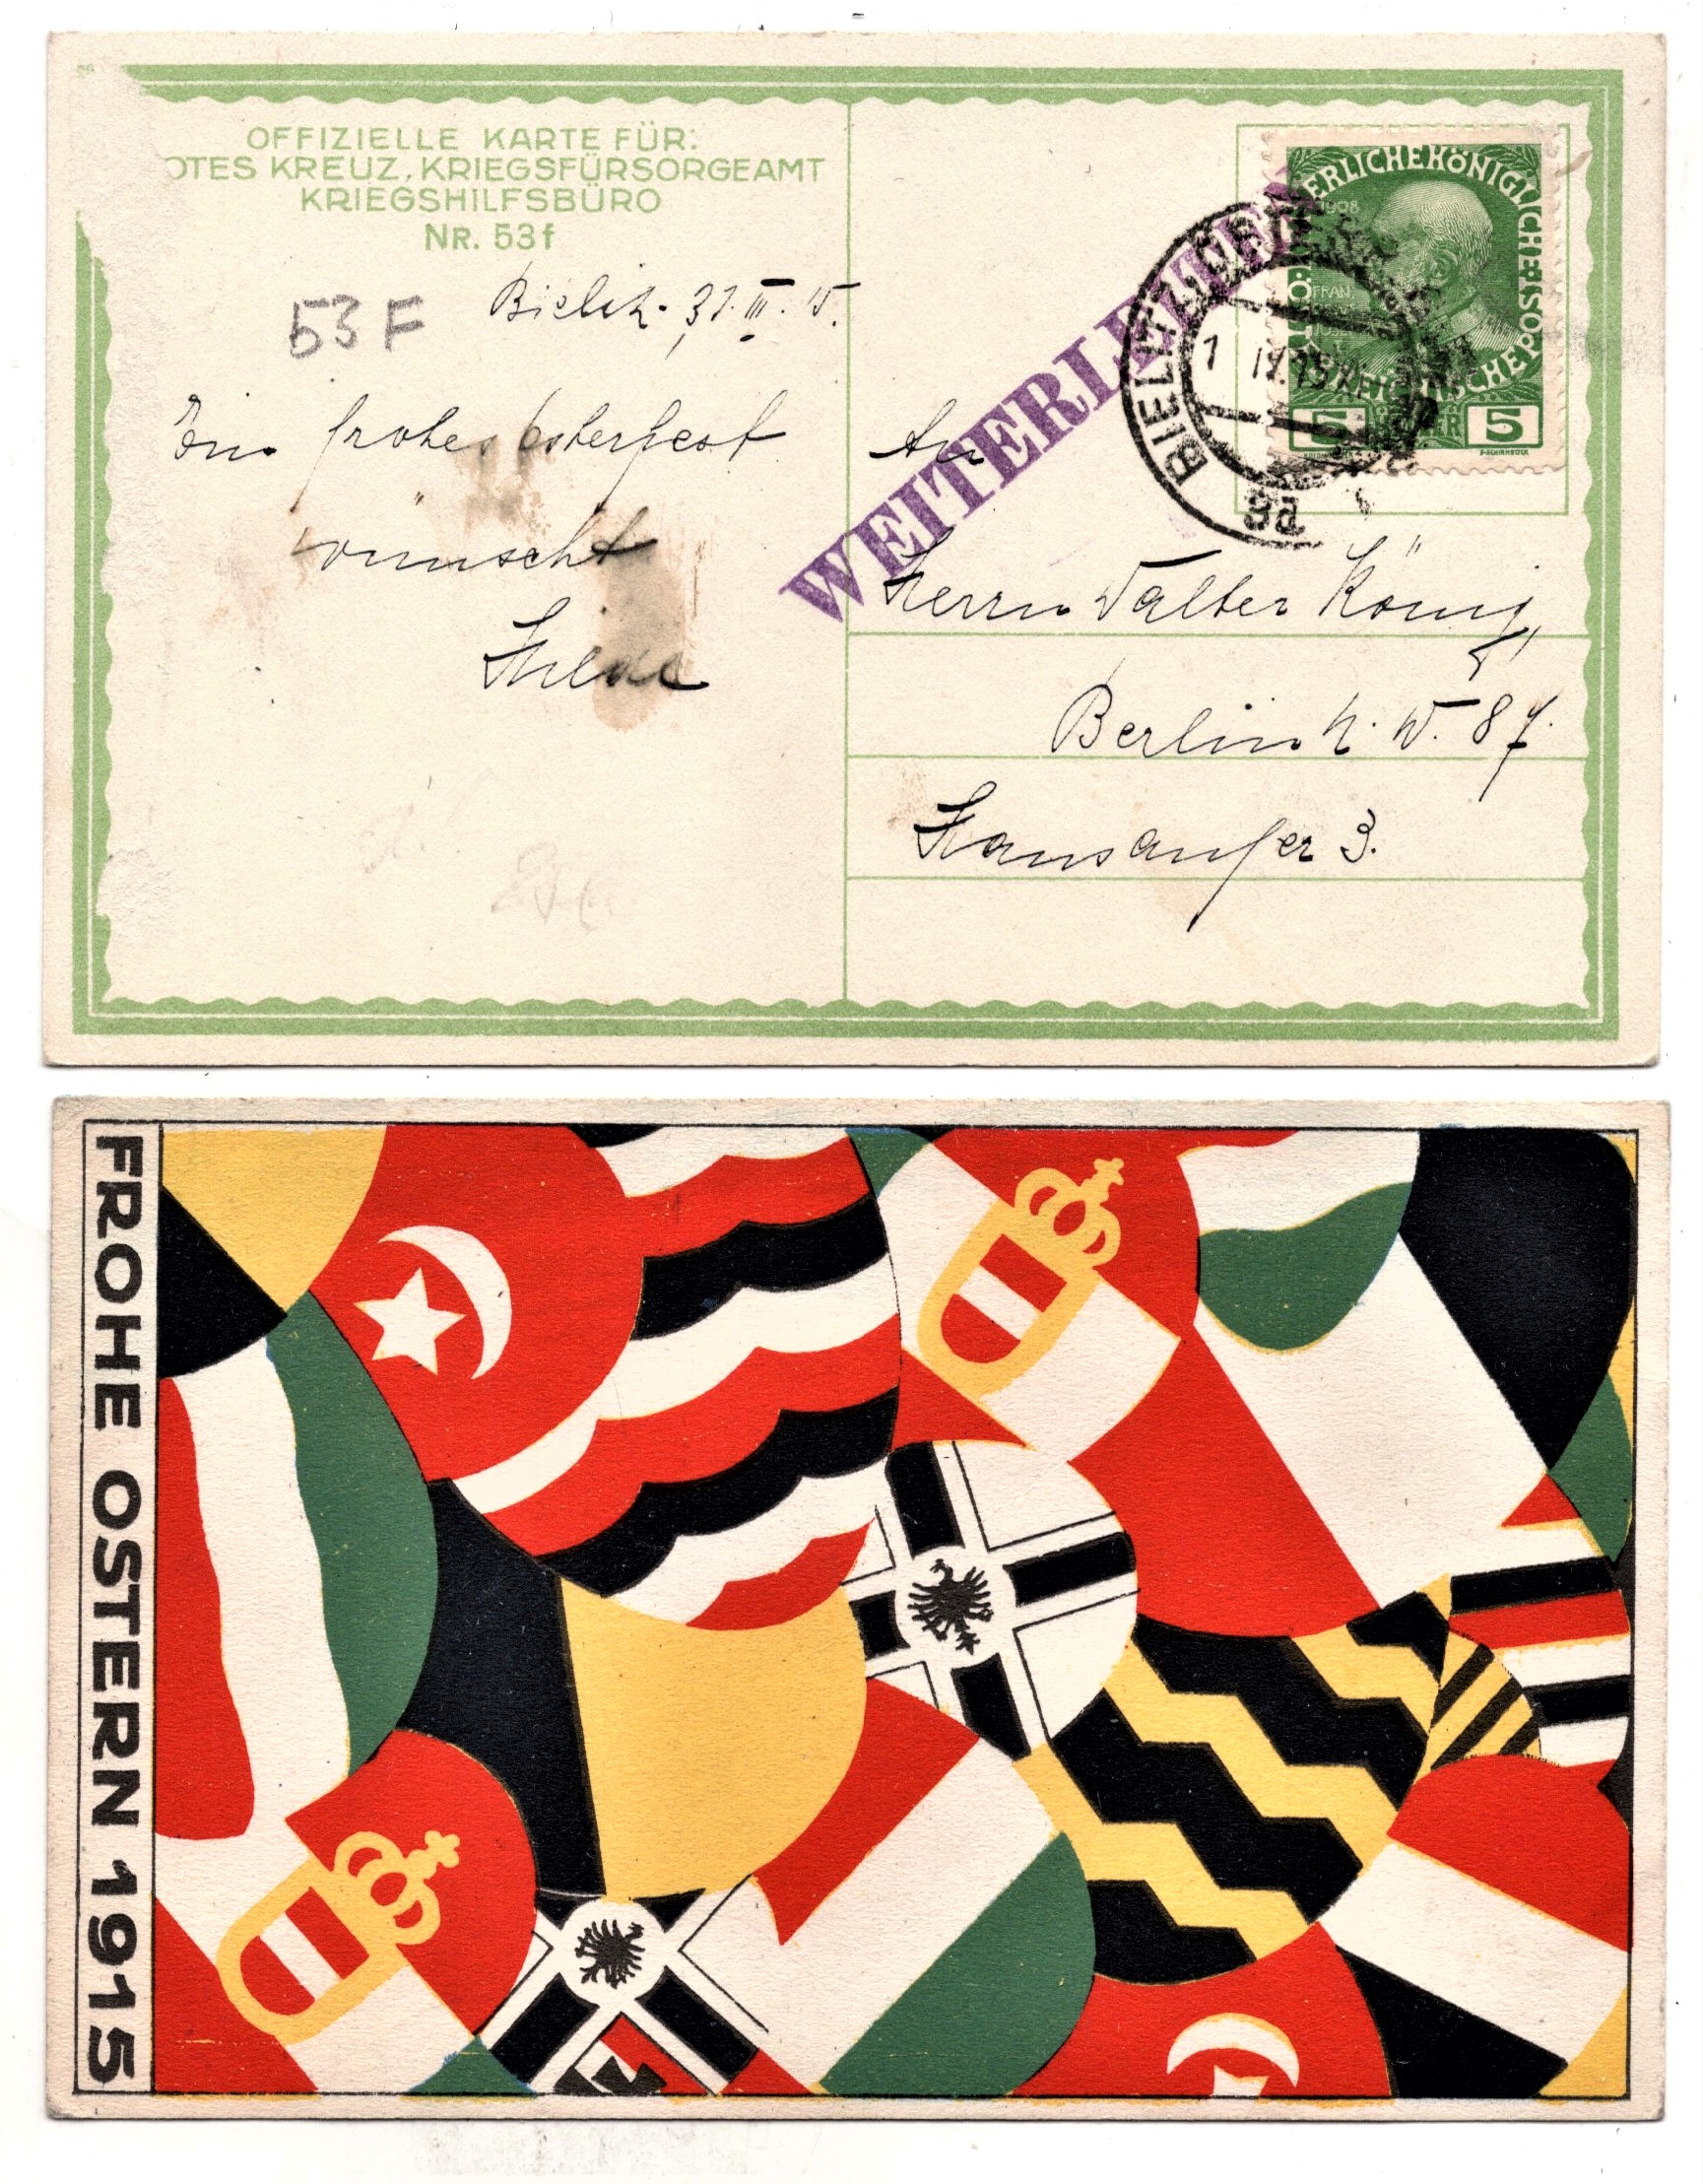 OFFIZIELLE KARTE FÜR:
OTES KREUZ, KRIEGSFÜRSORGEAMT
KRIEGSHILFSBÜRO
NR. 53f
53 F
Bielitz. 31. III. 15.
Ein frohes Osterfest
wünscht
Hilde
WEITERLEITEN
BIELITZ
1 IV. 15
8a
ERLICHEKÖNIGLICHE ÖSTERREICHISCHE POS
1908
FRAN
5 5
An
Herrn Walter König,
Berlin N. W. 87.
Hansaufer 3.
FROHE OSTERN 1915